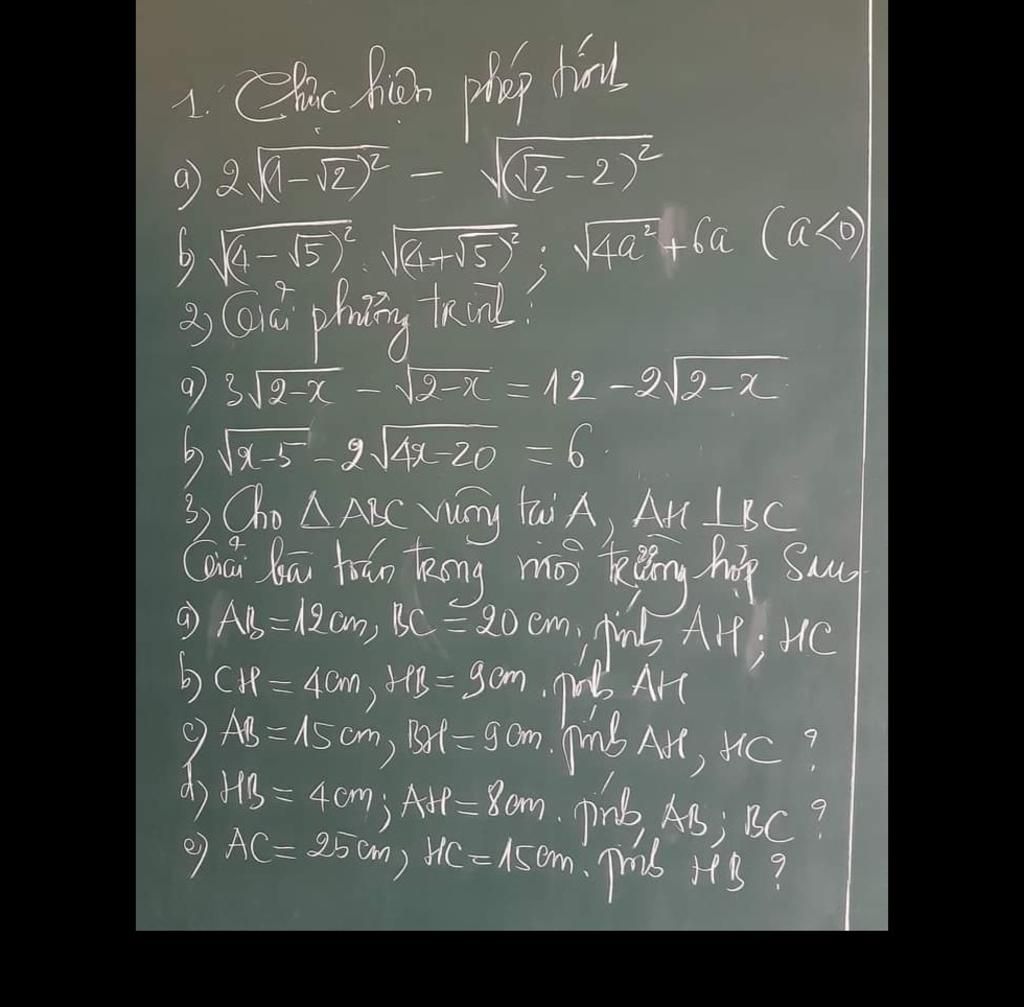 1. Thực hiện phép tính
a) 2√(1-√2)² - √(√2-2)²
b) √(4-√5)² . √(4+√5)² ; √4a² + 6a (a<0)
2) Giải phương trình:
a) 3√2-x - √2-x = 12 - 2√2-x
b) √x-5 - 2√4x-20 = 6.
3) Cho △ABC vuông tại A, AH ⊥ BC
Giải bài toán trong mỗi trường hợp sau
a) AB = 12cm, BC = 20cm, tính AH; HC
b) CH = 4cm, HB = 9cm. tính AH
c) AB = 15cm, BH = 9cm. tính AH, HC ?
d) HB = 4cm; AH = 8cm. tính AB; BC ?
e) AC = 25cm, HC = 15cm. tính HB ?